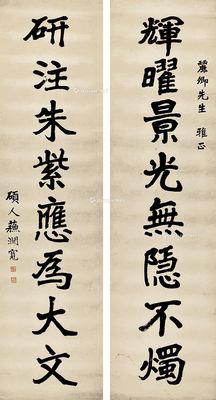 麗卿先生 雅正
輝曜景光無隐不燭
研注朱紫應為大文
碩人蘇澗寬